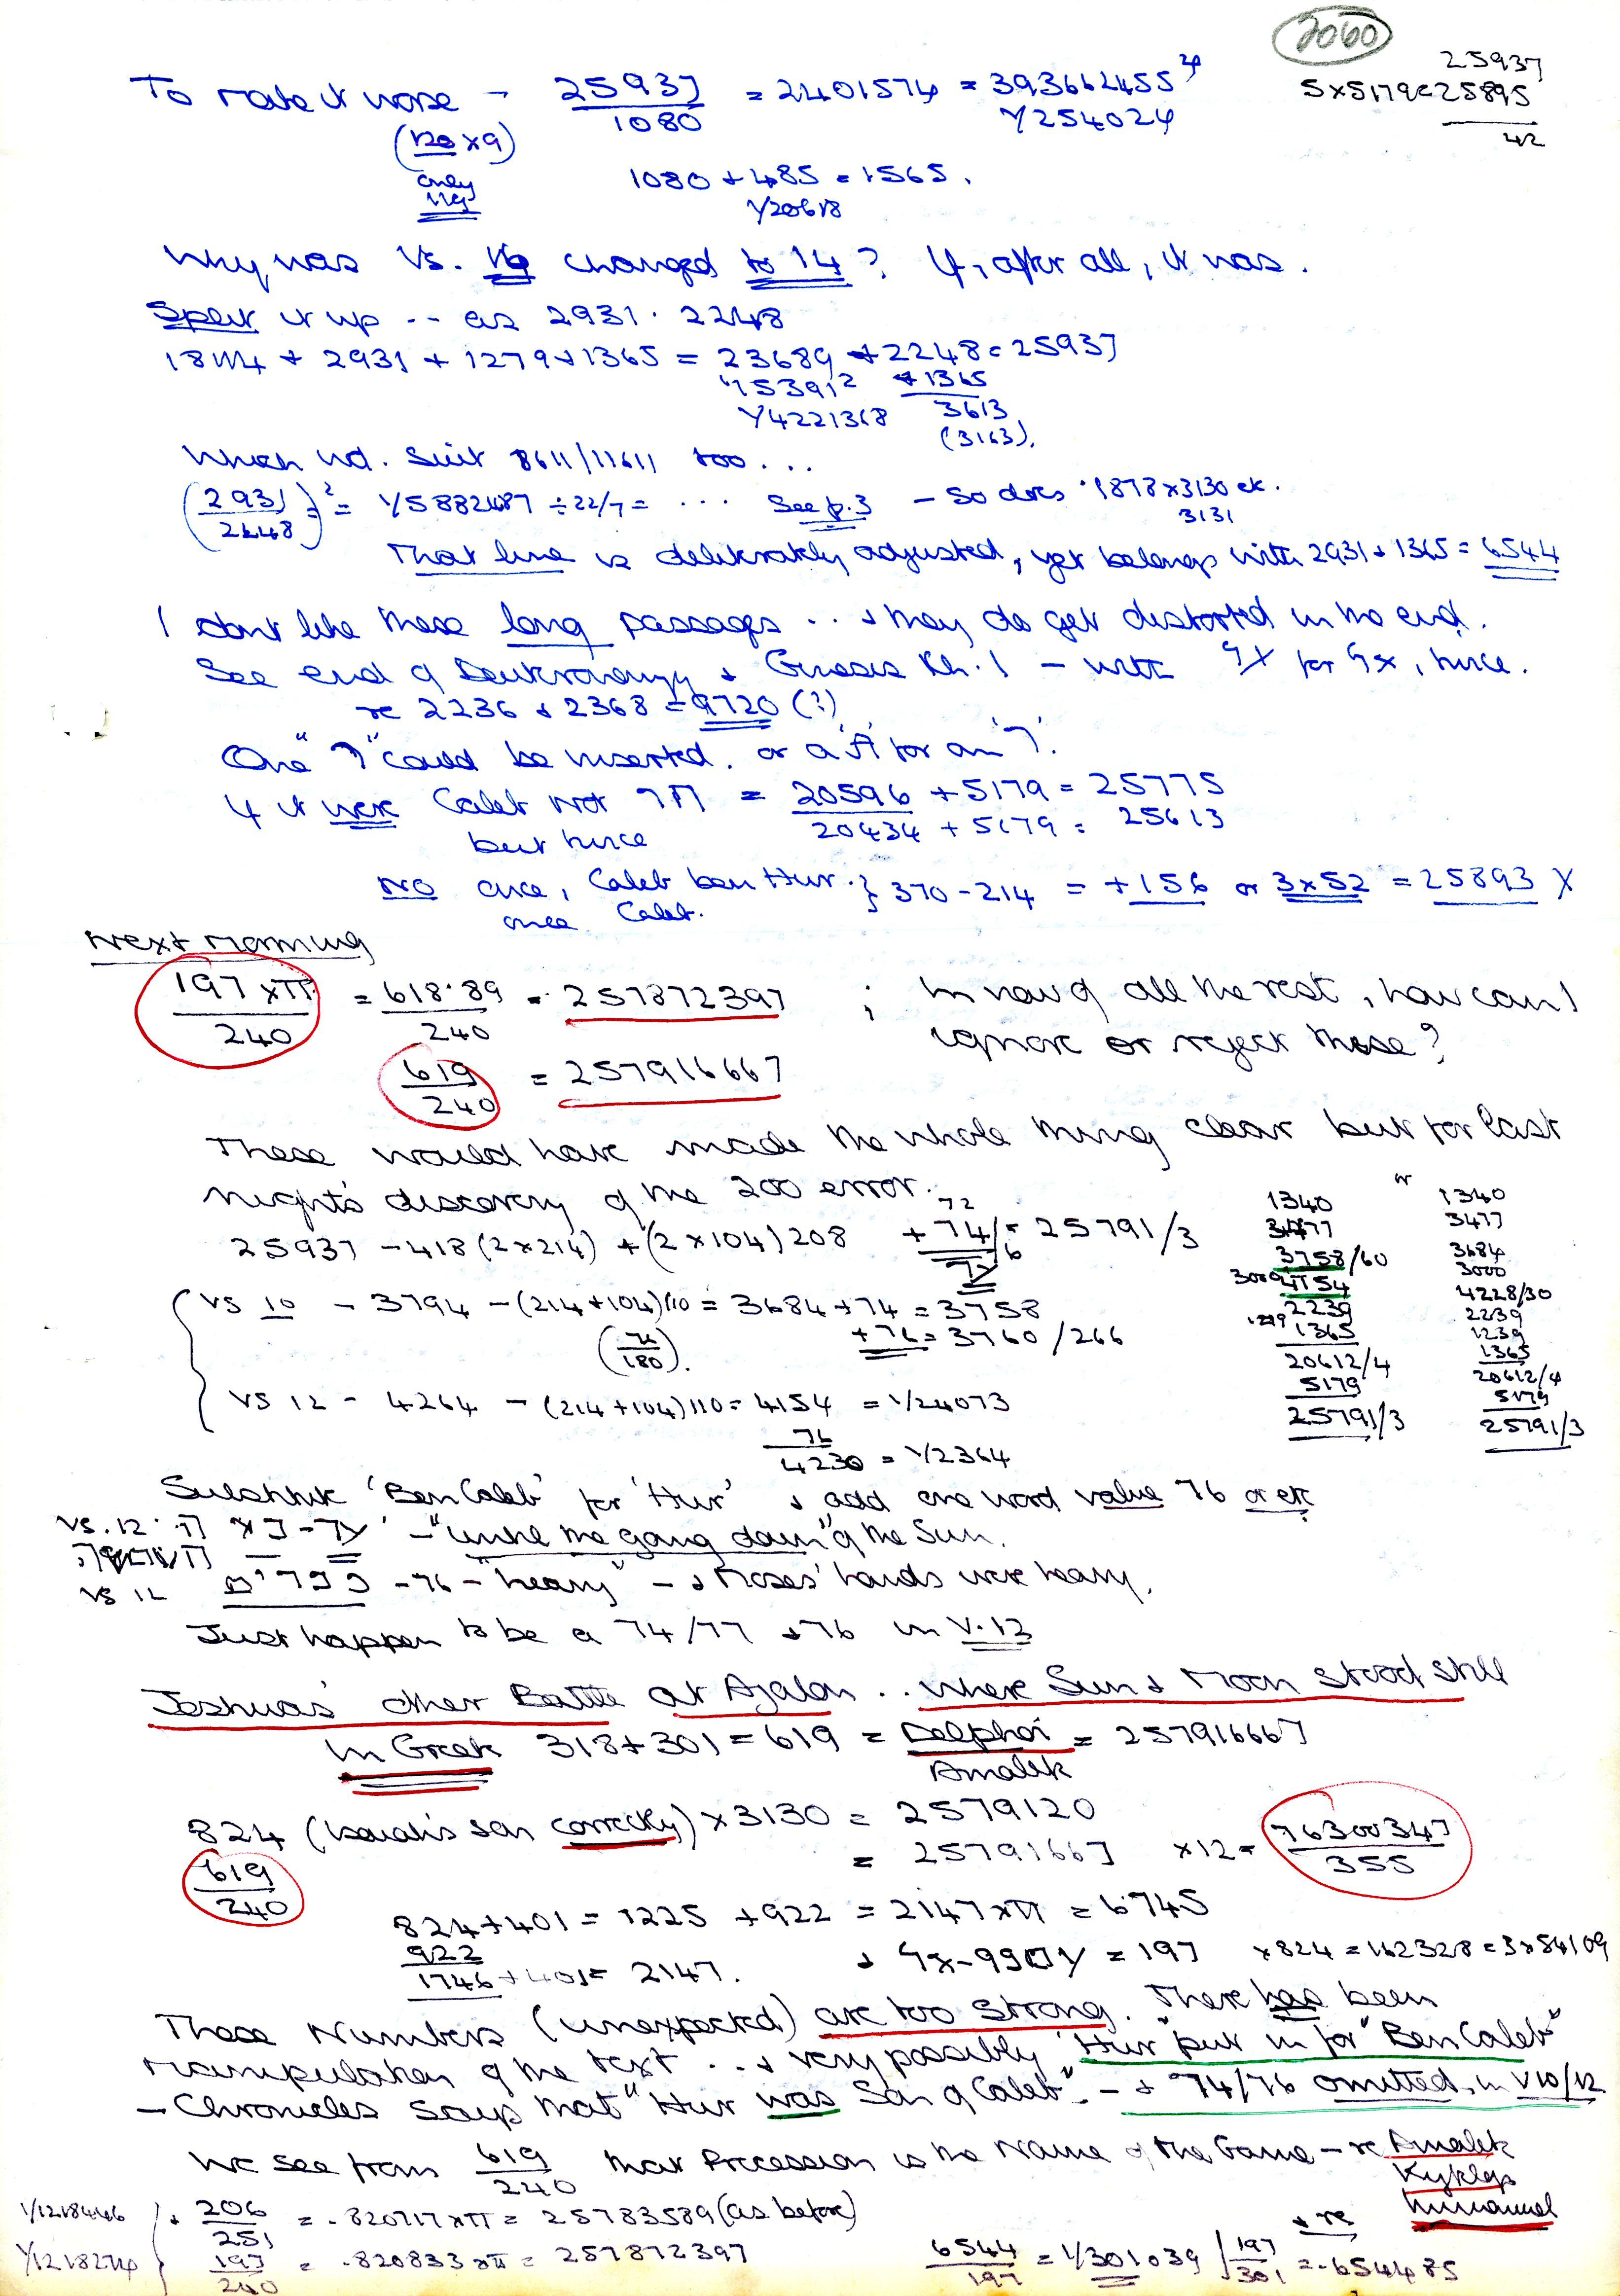 2060
25937
5x5179=25895
42
To make it worse - 25937/1080 = 2401574 = 393662455²
Y254024
(120 x 9)
only
119
1080 + 485 = 1565.
Y20618
Why was Vs. changed to 14? If, after all, it was.
it up -- as 2931. 2248
18114 + 2931 + 1279 + 1365 = 23689 + 2248 = 25937
153912 +1365
Y4221368 3613
(3163).
Which wd. suit 8611/11611 too...
(2931/2248)² = 1/5882487 ÷ 22/7 = ... See p.3 - So does 1878x3130 etc.
3131
That line is deliberately adjusted, yet belongs with 2931 + 1365 = 6544
I dont like these long passages .. & they do get distorted in the end.
See end of Deuteronomy & Genesis Ch. 1 - with for , twice.
re 2236 & 2368 = 9720 (?)
One "ר" could be inserted. or a 'ה' for an 'ר'.
If it were Caleb not חר = 20596 + 5179 = 25775
but twice 20434 + 5179 = 25613
No once, Caleb ben Hur. } 370 - 214 = +156 or 3x52 = 25893 X
once Caleb.
Next Morning
197 xπ/240 = 618.89/240 = 257872397 ; In view of all the rest, how can I
619/240 = 257916667 ignore or reject these?
These would have made the whole thing clear but for last
night's discovery of the 200 error.
72
25937 - 418 (2x214) + (2x104) 208 + 74/6 = 25791/3
Vs 10 - 3794 - (214+104) 110 = 3684 + 74 = 3758
(76/180). +76 = 3760/266
Vs 12 - 4264 - (214+104) 110 = 4154 = 1/24073
76
4230 = 1/2364
1340
3477
3758/60
3000 4154
2239
1279 1365
20612/4
5179
25791/3
or 1340
3477
3684
3000
4228/30
2239
1239
1365
20612/4
5179
25791/3
Substitute 'Ben Caleb' for 'Hur' & add one word value 76 or etc
Vs. 12 - "until the going down" of the Sun.
Vs 12 כבדים - 76 - "heavy" - & Moses' hands were heavy.
Just happen to be a 74/77 & 76 in V. 12
Joshuas' other Battle at Ajalon .. where Sun & Moon stood still
In Greek 318 + 301 = 619 = Delphoi = 257916667
Amalek
824 (Isaiah's son correctly) x 3130 = 2579120
619/240 = 25791667 x12 = 76300347/355
824 + 401 = 1225 + 922 = 2147 xπ = 6745
922
1746 + 401 = 2147. & = 197 x824 = 162328 = 3x54109
These Numbers (unexpected) are too strong. There has been
manipulation of the text ... & very possibly "Hur" put in for "Ben Caleb"
- Chronicles says that "Hur was Son of Caleb". - & 74/76 omitted in V10/12
We see from 619/240 that Precession is the Name of the Game - re Amalek
Kyklops
& re Immanuel
1/1218446 } & 206/251 = .820717 xπ = 25783589 (as before)
Y1218274 197/240 = .820833 xπ = 257872397 6544/197 = 1/301039 | 197/301 = .654485